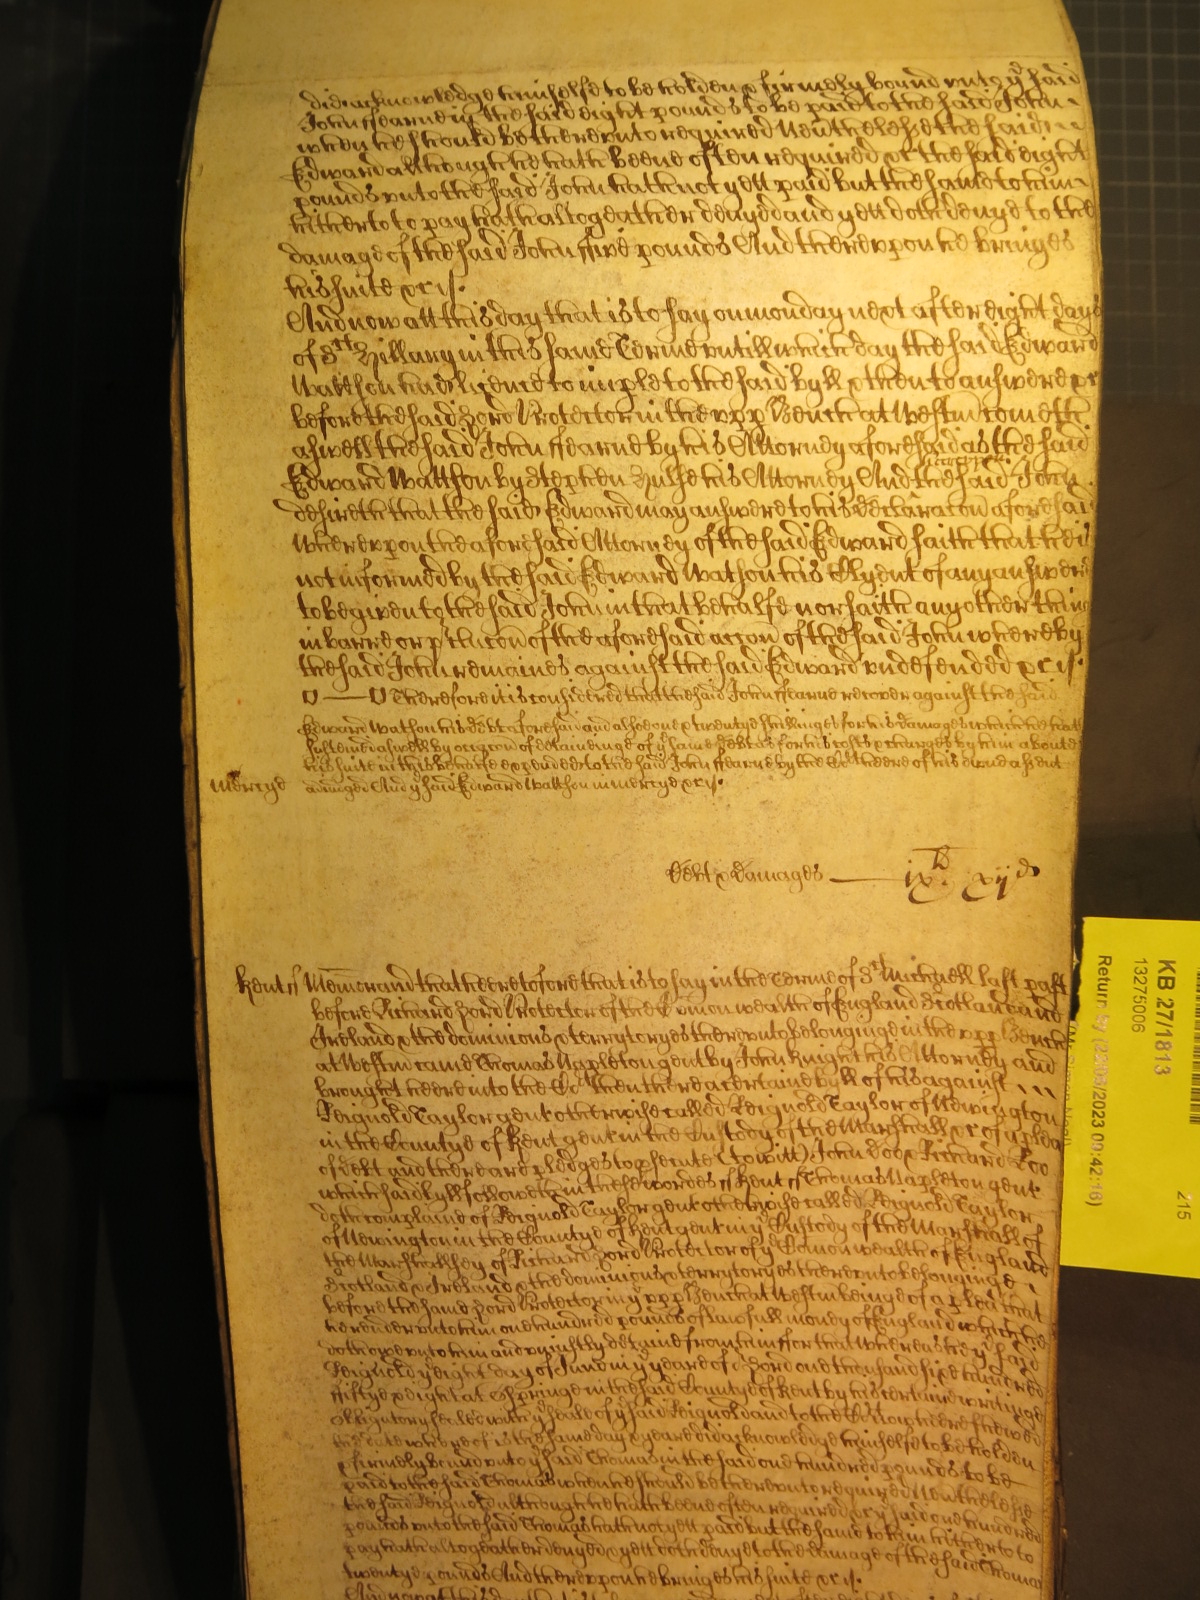 did acknowledge himselfe to be holden & firmely bound unto ye said
John ffearne in the said eight pounds to be paid to the said John
when he should be thereunto required Neverthelesse the said
Edward although he hath beene often required &c the said eight
pounds unto the said John hath not yett paid but the same to him
hitherto to pay hath altogeather denyed and yett doth denye to the
damage of the said John ffive pounds And thereupon he bringes
his suite &c
And now att this day that is to say on monday next after eight dayes
of St Hillary in this same Terme untill which day the said Edward
Watson had licence to imple to the said byll & then to answere &c
before the said Lord Protector in the upp Bench at Westm cometh
aswell the said John ffearne by his Attorney aforesaid as the said
Edward Watson by Stephen Hulse his Attorney And the said John
desireth that the said Edward may answere to his declaracon aforesaid
Whereupon the aforesaid Attorney of the said Edward saith that he is
not informed by the said Edward Watson his Clyent of any answere
to be given to the said John in that behalfe nor saith any other thing
in barre or of the aforesaid accon of the said John whereby
the said John remaines against the said Edward undefended &c
Therefore it is considered that the said John ffearne recover against the said
Edward Watson his debt aforesaid and alsoe one & twentye shillinges for his damages which he hath
susteined aswell by occasion of detaininge of ye same debt as for his costs & charges by him about
his suite in this behalfe expended to the said John ffearne by the Court heere of his owne assent
adiudged And ye said Edward Watson in mercye &c
mercye
Debt & damages — ixli xijd
Kent ss Memorand that heretofore that is to say in the Terme of St Michaell last past
before Richard Lord Protector of the Comonwealth of England Scotland and
Ireland & the dominions & terrytoryes thereunto belonginge in the upp Bench
at Westm came Thomas Napleton gent by John Knight his Attorney and
brought heere into the Court then there a certaine byll of his against
Reignold Taylor gent otherwise called Reignold Taylor of Newington
in the Countye of Kent gent in the Custody of the Marshall &c of a plea
of debt and there are pledges to psecute (to witt) John Doe & Richard Roe
which said byll followeth in these wordes ss Kent ss Thomas Napleton gent
doth complaine of Reignold Taylor gent otherwise called Reignold Taylor
of Newington in the Countye of Kent gent in ye Custody of the Marshall of
the Marshallsey of Richard Lord Protector of ye Comonwealth of England
Scotland & Ireland & the dominions & terrytoryes thereunto belonginge
before the same Lord Protector in ye upp Bench at Westm beinge of a plea that
he render unto him one hundred pounds of lawfull money of England which he
doth owe unto him and uniustly detaine from him ffor that whereas he ye said
Reignold ye eight day of June in ye yeare of or Lord one thousand six hundred
ffiftye & eight at Springe in the said Countye of Kent by his certaine writinge
obligatory sealed with ye seale of ye said Reignold and to the Court now heere shewed
the date whereof is the same day & yeare did acknowledge himselfe to be holden
& firmely bound unto ye said Thomas in the said one hundred pounds to be
paid to the said Thomas when he should be thereunto required Neverthelesse
the said Reignold although he hath beene often required &c ye said one hundred
pounds unto the said Thomas hath not yett paid but the same to him hitherto to
pay hath altogeather denyed & yett doth denye to the damage of the said Thomas
twentye pounds And thereupon he bringes his suite &c
KB 27/1813
13275006
215
Return by (22/08/2023 00:42:16)